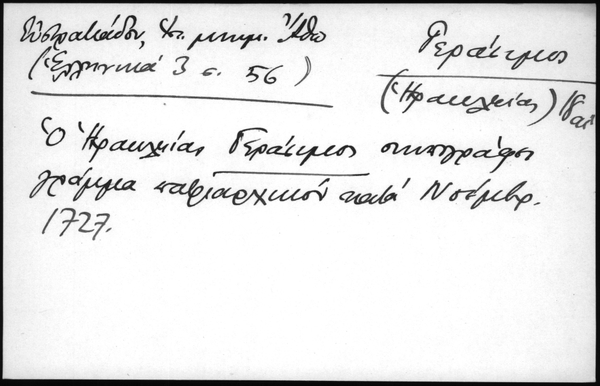 Εὐστρατιάδου, Ἱστ. μνημ. Ἄθω
(Ἑλληνικά 3 σ. 56)
Γεράσιμος
(Ἡρακλείας) 18 αἰ
Ὁ Ἡρακλείας Γεράσιμος συνυπογράφει
γράμμα πατριαρχικόν κατά Νοέμβρ.
1727.